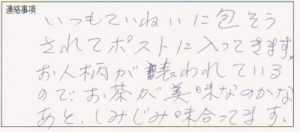 連絡事項
いつもていねいに包そう
されてポストに入ってきます。
お人柄が表われている
ので、お茶が美味なのかな
あと、しみじみ味合ってます。